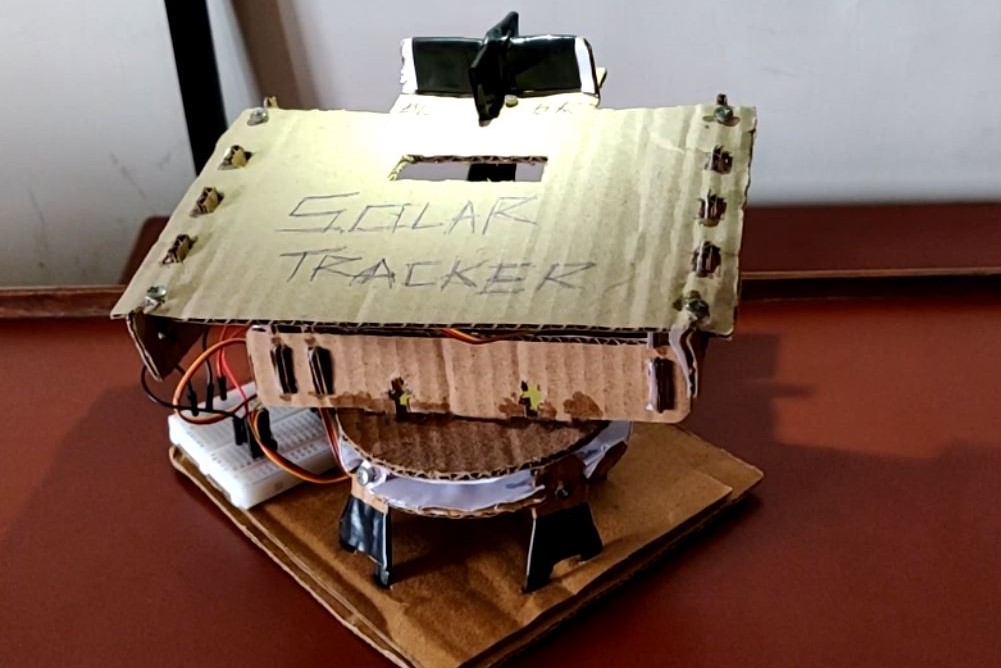 SOLAR
TRACKER